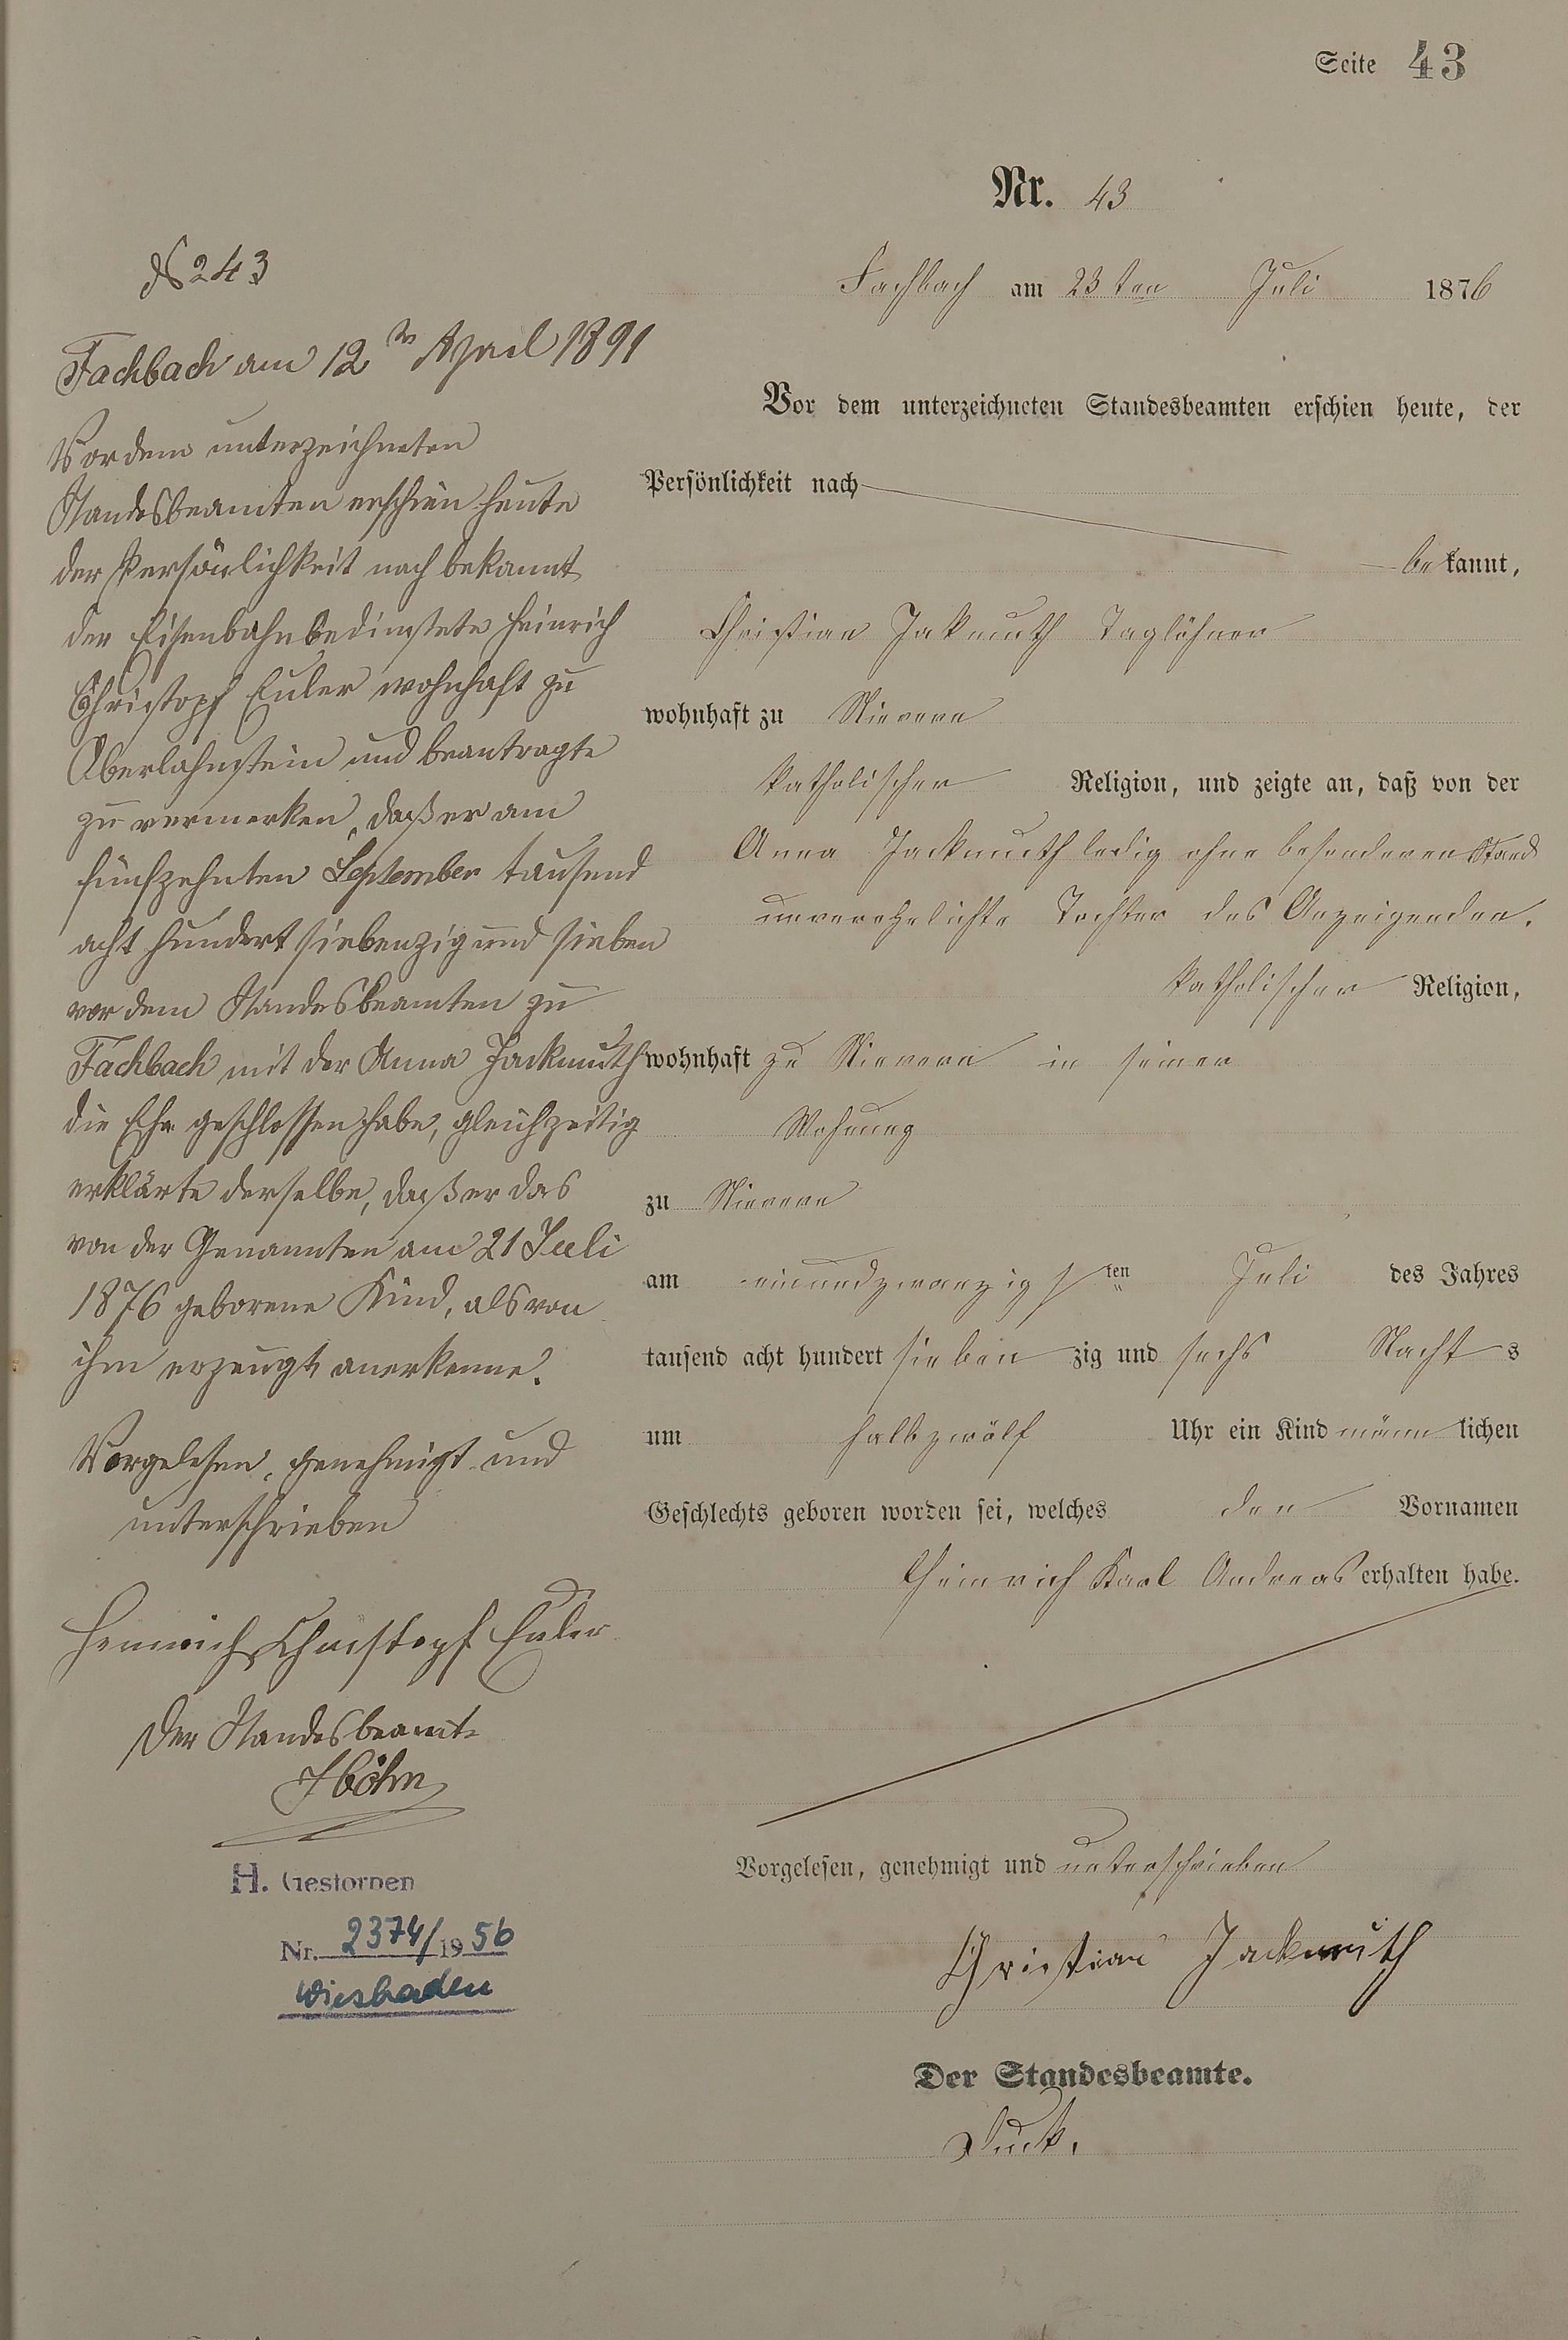 Seite 43
Nr. 43
Fachbach am 23ten Juli 1876
Vor dem unterzeichneten Standesbeamten erschien heute, der
Persönlichkeit nach
bekannt,
Christian Jakmuth Taglöhner
wohnhaft zu Nievern
katholischer Religion, und zeigte an, daß von der
Anna Jackmuth ledig ohne besonderen Stand
unverehelichte Tochter des Anzeigenden.
katholischer Religion,
wohnhaft zu Nievern in seiner
Wohnung
zu Nievern
am einundzwanzigsten Juli des Jahres
tausend acht hundert siebenzig und sechs Nachts
um halbzwölf Uhr ein Kind männlichen
Geschlechts geboren worden sei, welches den Vornamen
Heinrich Karl Andreas erhalten habe.
Vorgelesen, genehmigt und unterschrieben
Christian Jackmuth
Der Standesbeamte.
243
Fachbach am 12ten April 1891
Vor dem unterzeichneten
Standesbeamten erschien heute
der Persönlichkeit nach bekannt
der Eisenbahnbedienstete Heinrich
Christopf Euler wohnhaft zu
Oberlahnstein und beantragte
zu vermerken, daß er am
fünfzehnten September tausend
acht hundert siebenzig und sieben
vor dem Standesbeamten zu
Fachbach mit der Anna Jackmuth
die Ehe geschlossen habe, gleichzeitig
erklärte derselbe, daß er das
von der Genannten am 21 Juli
1876 geborene Kind, als von
ihm erzeugt anerkenne.
Vorgelesen, genehmigt und
unterschrieben
Heinrich Christopf Euler
Der Standesbeamte
H. Gestorben
Nr. 2374/1956
Wiesbaden